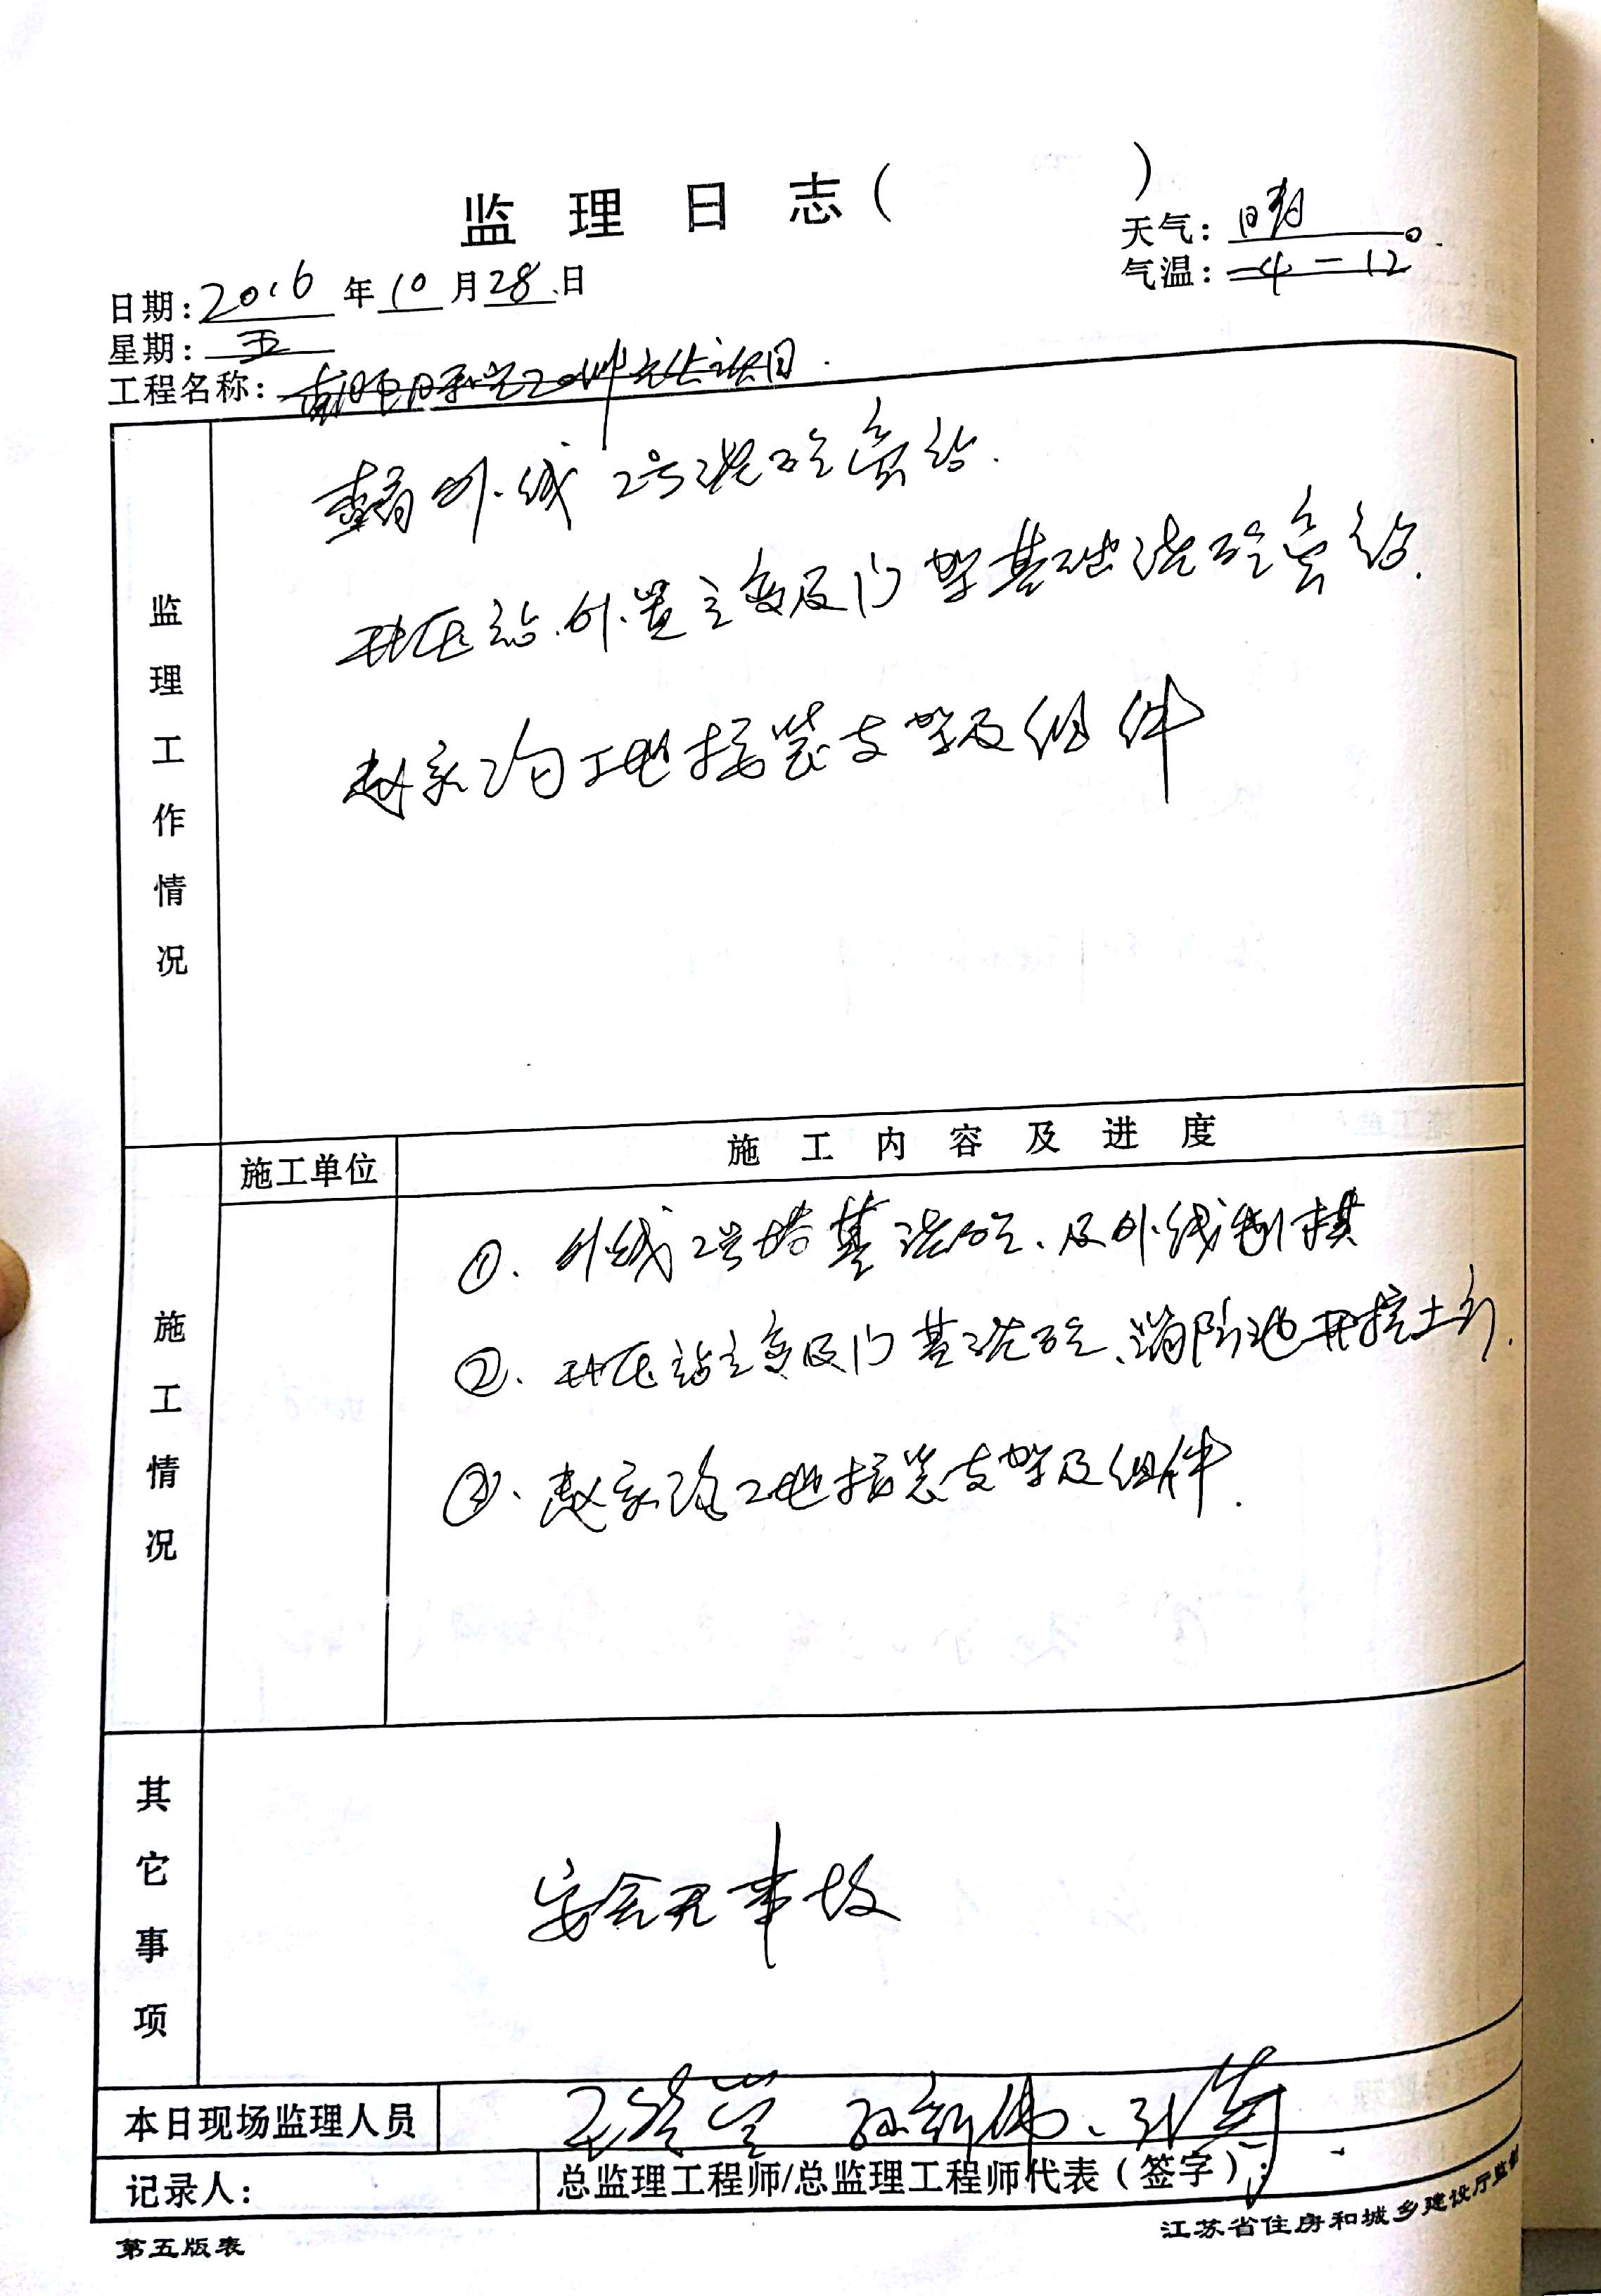 监理日志( )
天气: 晴
气温: -4-12°
日期: 2016年10月28日
星期: 五
工程名称:
监理工作情况
外线2号浇砼旁站.
升压站外置主变及门架基础浇砼旁站.
赵家沟工地接装支架及组件
施工情况
施工单位
施工内容及进度
①. 外线2号塔基浇砼、及外线制模
②. 升压站主变及门基浇砼、消防池开挖土方.
③. 赵家沟工地接装支架及组件.
其它事项
安全无事故
本日现场监理人员 孙新伟、
记录人:
总监理工程师/总监理工程师代表(签字):
第五版表
江苏省住房和城乡建设厅监制